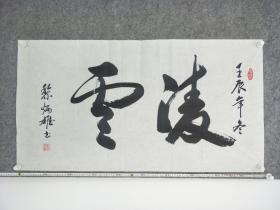 壬辰年冬
凌雲
黎炳雄书